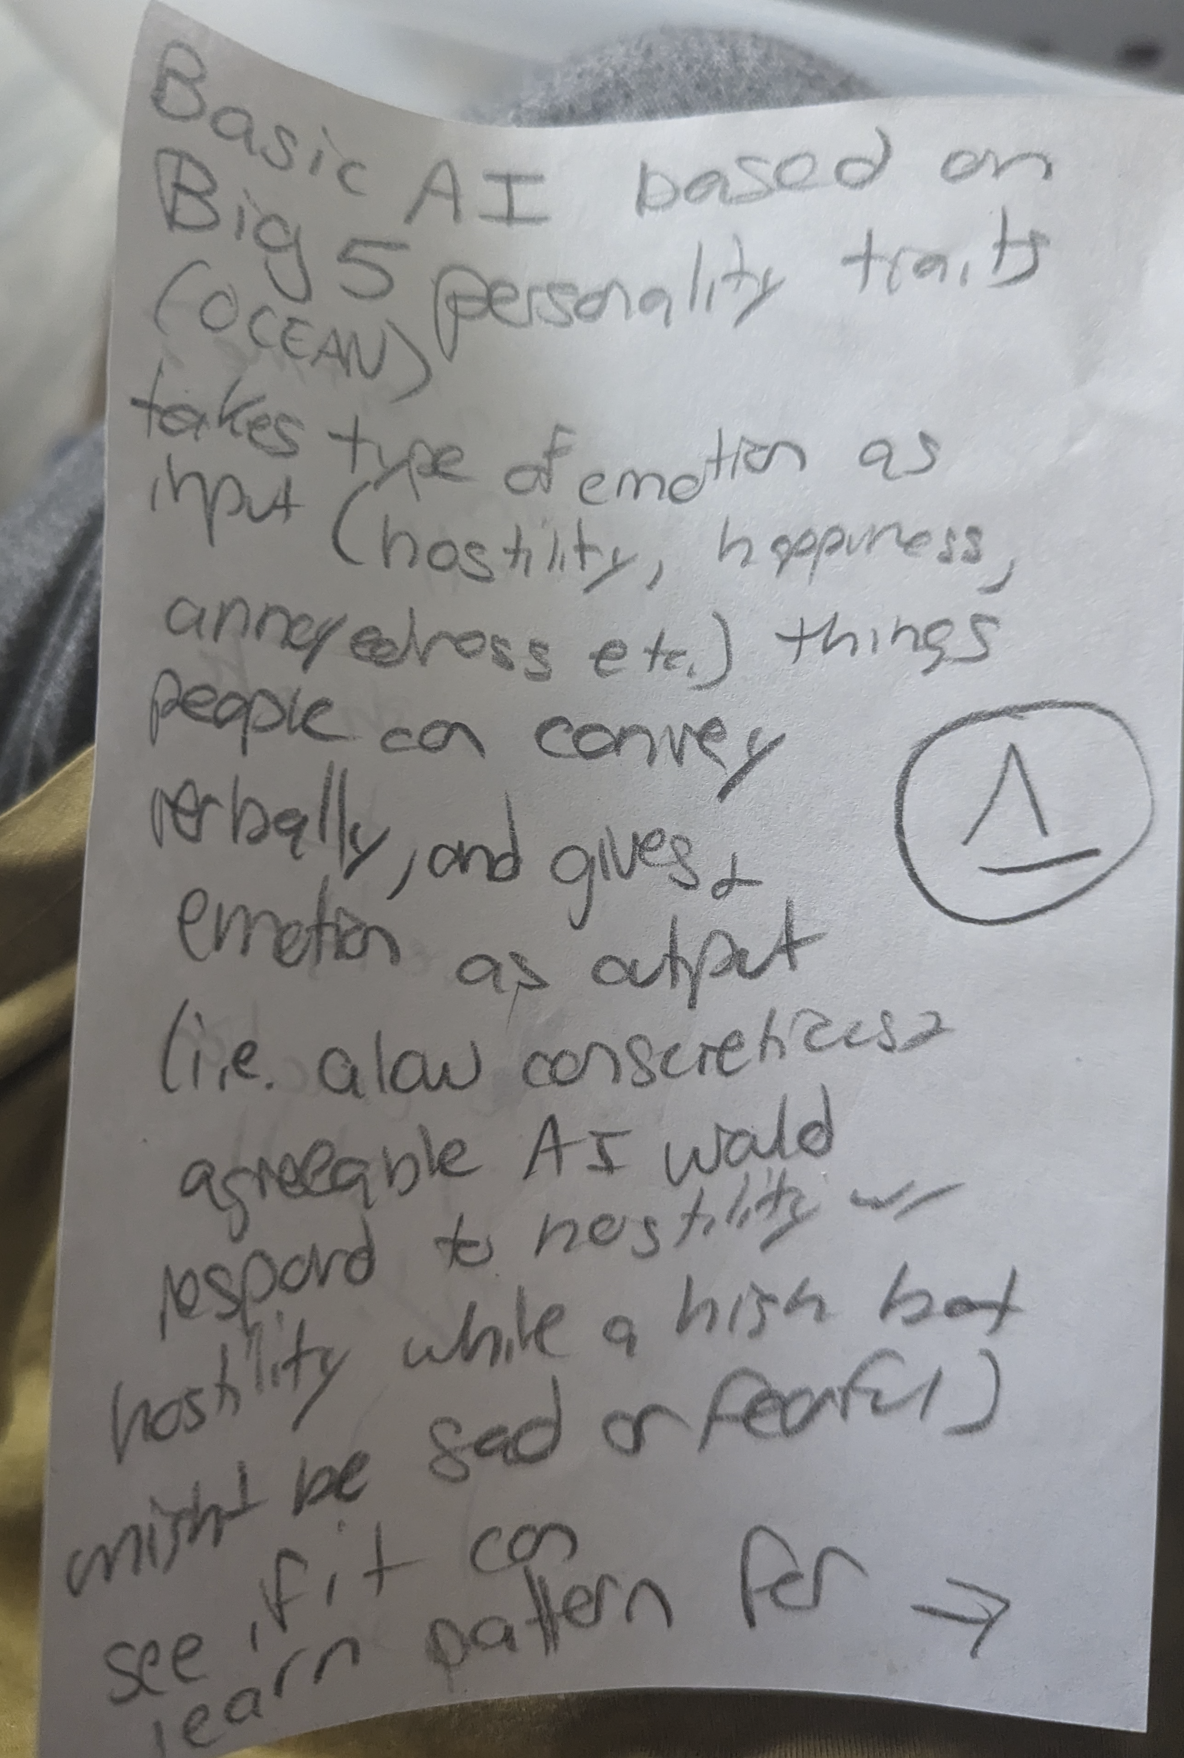 Basic AI based on
Big 5 personality traits
(OCEAN)
takes type of emotion as
input (hostility, happiness,
annoyedness etc.) things
people can convey
verbally, and gives
emotion as output
(i.e. a low
agreeable AI would
respond to hostility w
hostility while a high bot
might be sad or fearful)
see if it can
learn pattern for →